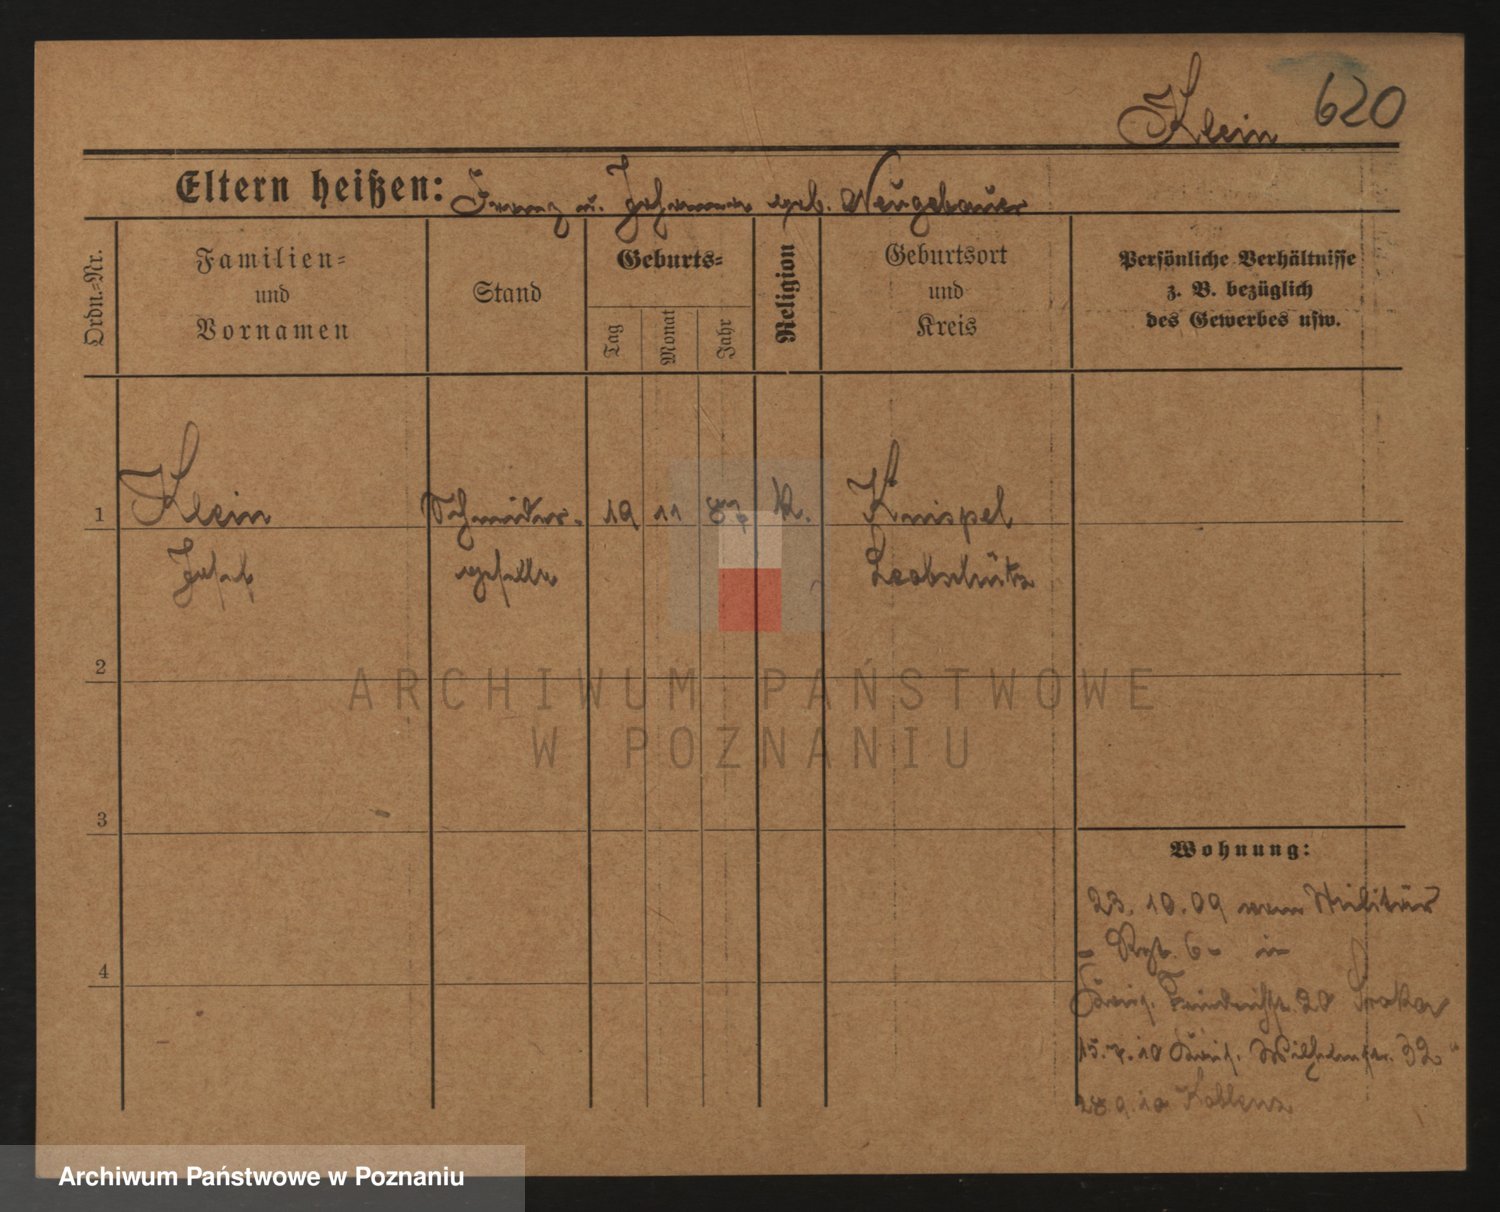 Klein 620
Eltern heißen: Franz u. Johanna geb. Neugebauer
Ordn.-Nr.
Familien-
und
Vornamen
Stand
Geburts-
Tag
Monat
Jahr
Religion
Geburtsort
und
Kreis
Persönliche Verhältnisse
z. B. bezüglich
des Gewerbes usw.
1 Klein Schneider- 19 11 87 K. Knispel
Josef geselle Leobschütz
2
ARCHIWUM PAŃSTWOWE
W POZNANIU
3
Wohnung:
23. 10. 09 vom Militär
- Rgt. 6 - in
4
Friedrichstr. 20
15.7.10 Wilhelmstr. 32
28.9.10 Koblenz
Archiwum Państwowe w Poznaniu